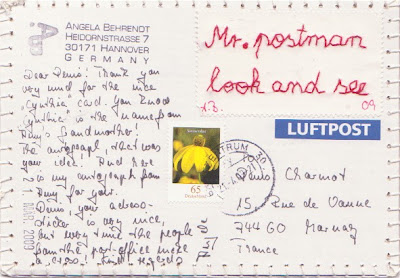 ANGELA BEHRENDT
HEIDORNSTRASSE 7
30171 HANNOVER
GERMANY
Dear Denis! Thank you
very much for the nice
Cynthia card. You know
Cynthia is the name from
Grandmother!
the autograph, that was
your idea! And here
is my autograph from
for you.
Denis, your address-
sticker is very nice,
but every time the people
from the post office
1. MRZ. 2009
Mr. postman
look and see
09
LUFTPOST
65
Deutschland
ZENTRUM 30
Denis Charmot
15, Rue de Vanne
74460 Marnaz
France